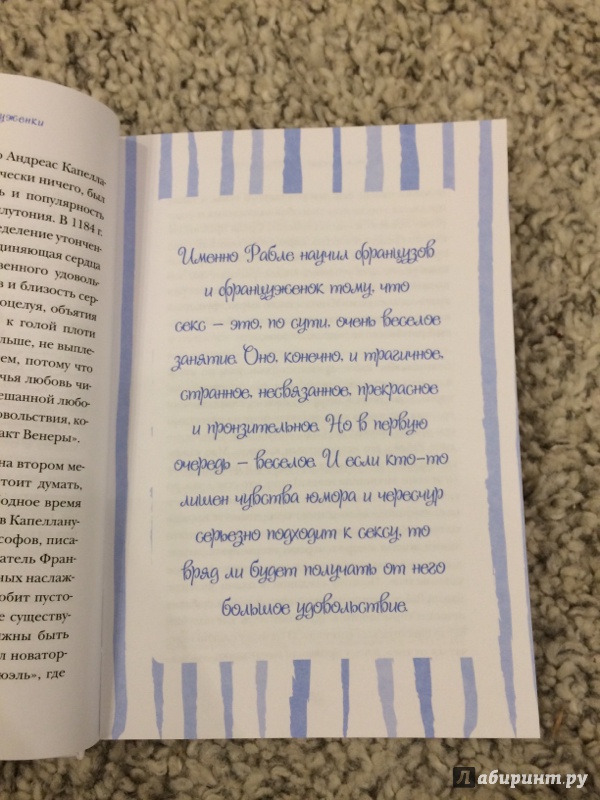 уженки
о Андреас Капелла-
чески ничего, был
ь и популярность
лутония. В 1184 г.
еделение утончен-
диняющая сердца
венного удоволь-
в и близость сер-
оцелуя, объятия
к голой плоти
льше, не выпле-
ем, потому что
чья любовь чи-
ешанной любо-
овольствия, ко-
акт Венеры».
на втором ме-
тоит думать,
одное время
в Капеллану-
ософов, писа-
атель Фран-
ных наслаж-
обит пусто-
е существу-
жны быть
л новатор-
юэль», где
Именно Рабле научил французов
и француженок тому, что
секс – это, по сути, очень веселое
занятие. Оно, конечно, и трагичное,
странное, несвязанное, прекрасное
и пронзительное. Но в первую
очередь – веселое. И если кто-то
лишен чувства юмора и чересчур
серьезно подходит к сексу, то
вряд ли будет получать от него
большое удовольствие.
Лабиринт.ру